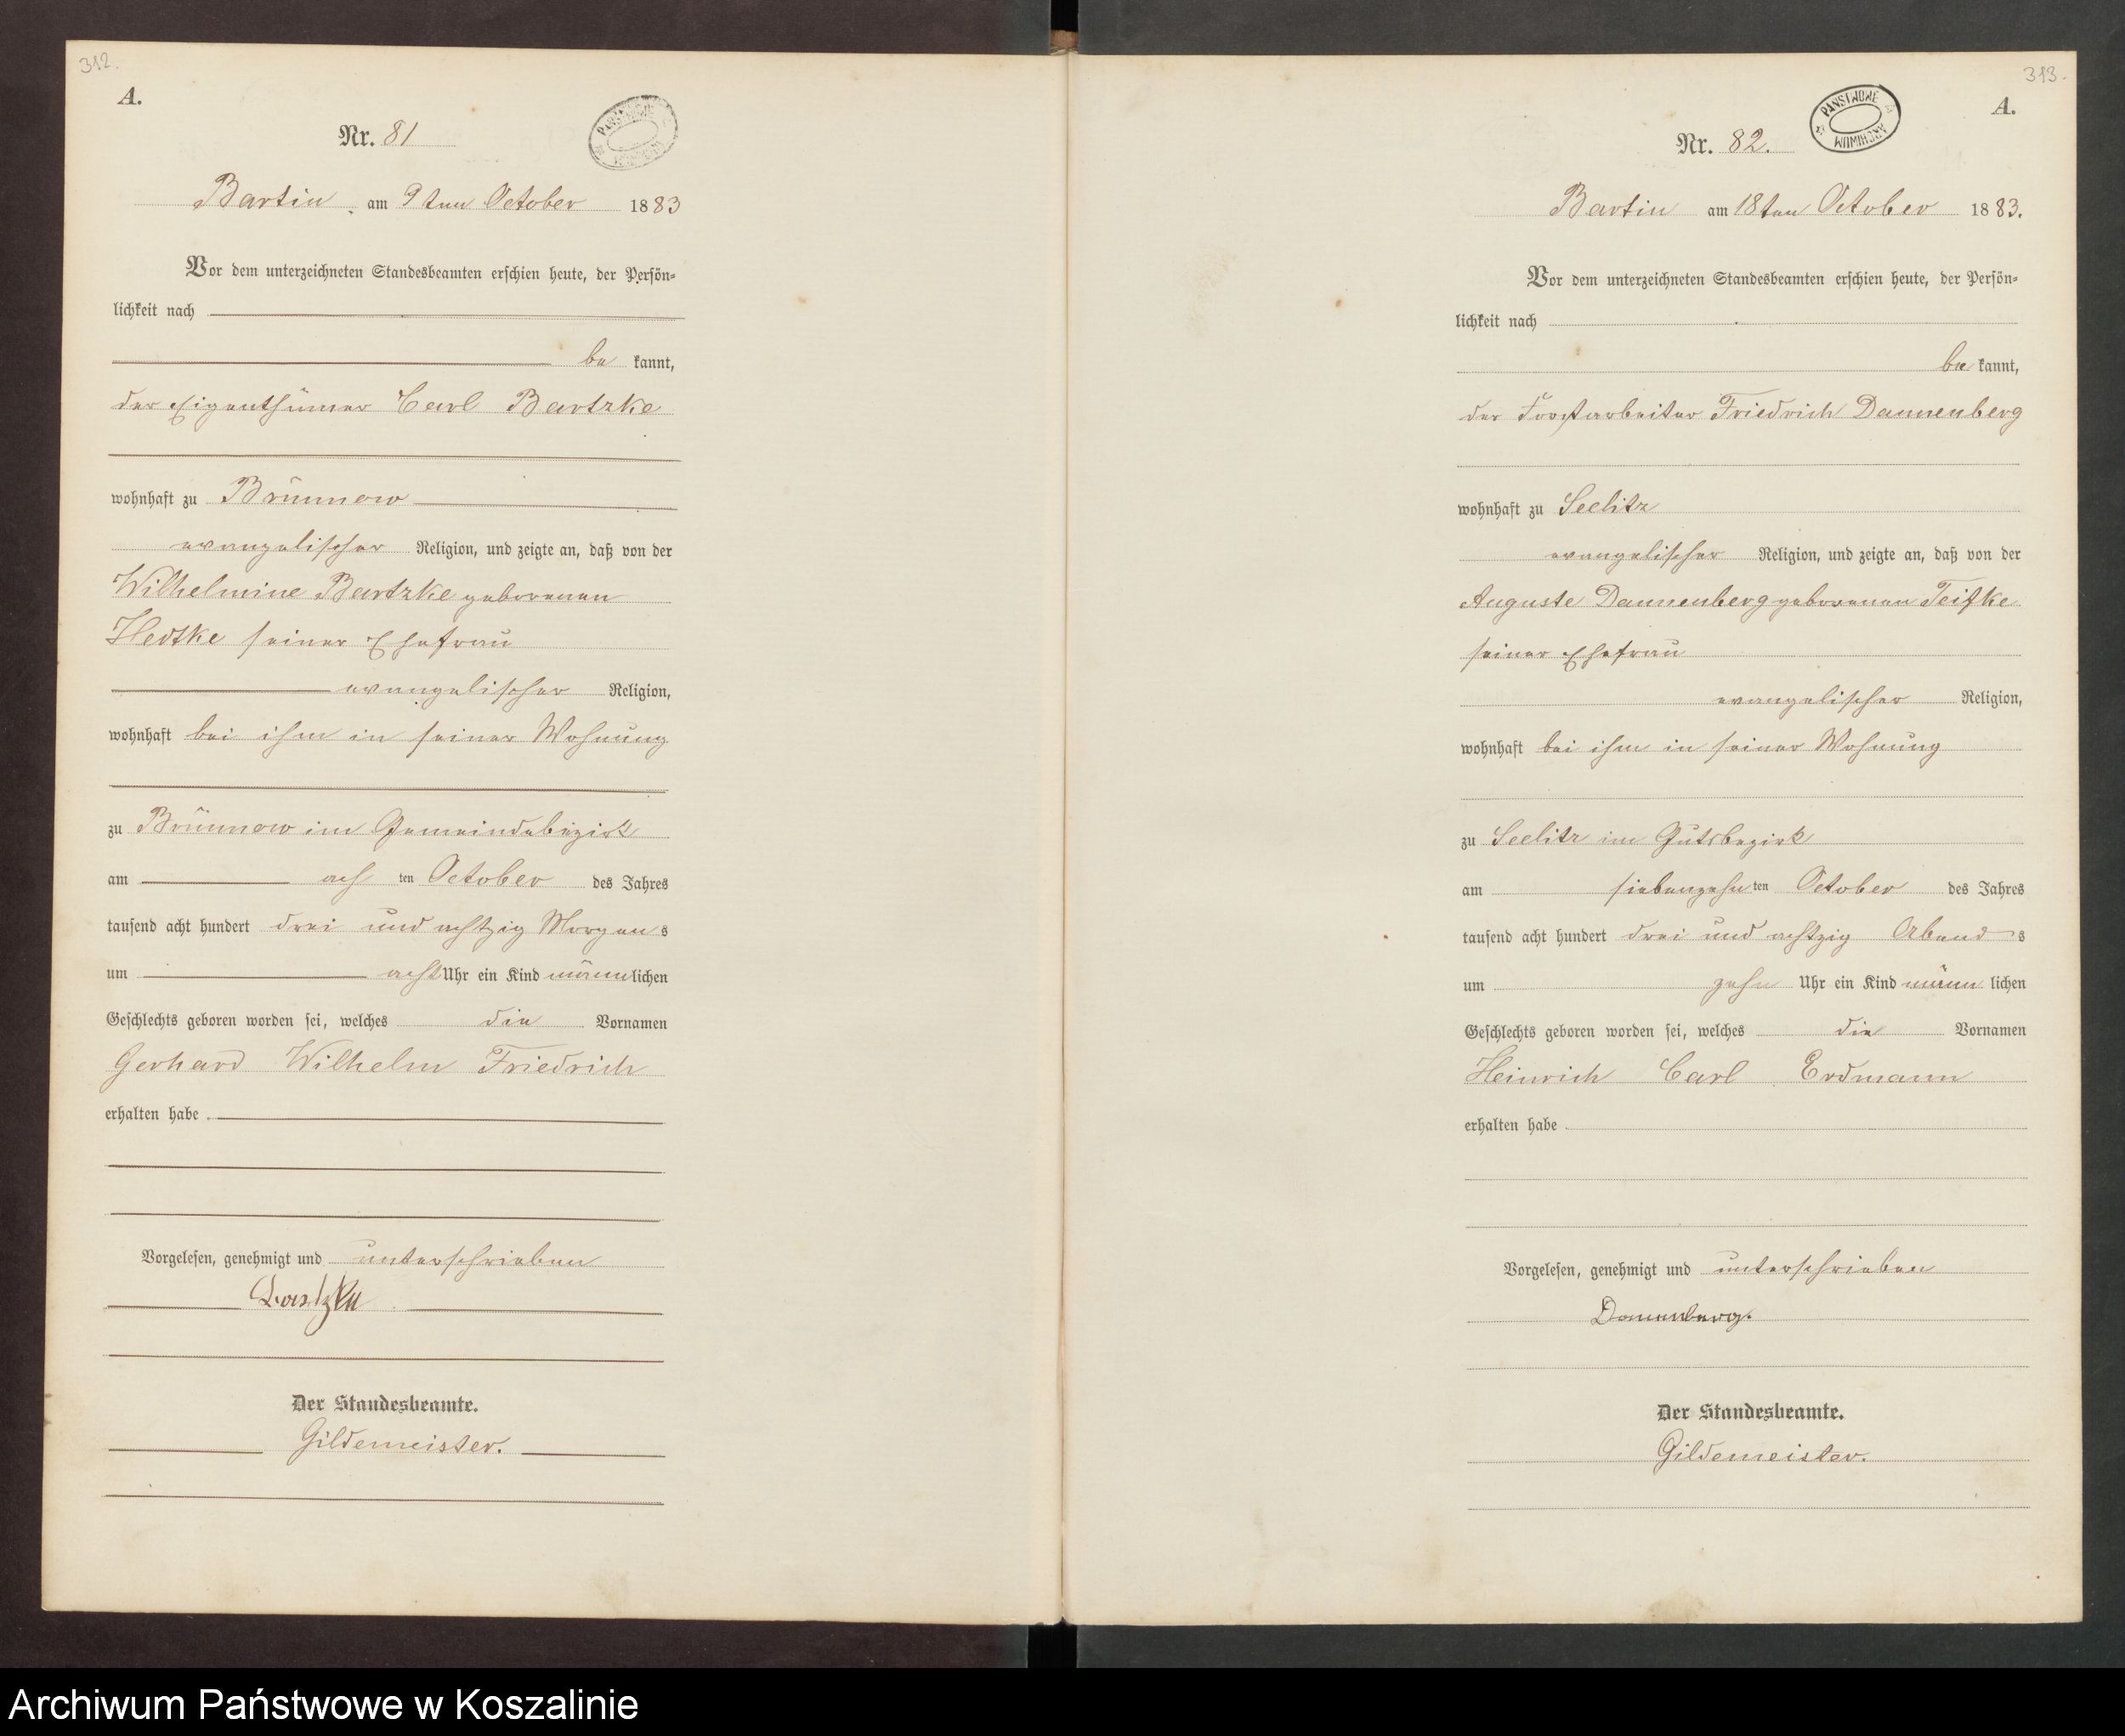 312.
A.
Nr. 81
Bartin, am 9ten October 1883
Vor dem unterzeichneten Standesbeamten erschien heute, der Persön-
lichkeit nach
be kannt,
der Eigenthümer Carl Bartzke
wohnhaft zu Brünnow
evangelischer Religion, und zeigte an, daß von der
Wilhelmine Bartzke geborenen
Hedtke seiner Ehefrau
evangelischer Religion,
wohnhaft bei ihm in seiner Wohnung
zu Brünnow im Gemeindebezirk
am ach ten October des Jahres
tausend acht hundert drei und achtzig Morgens
um acht Uhr ein Kind männlichen
Geschlechts geboren worden sei, welches die Vornamen
Gerhard Wilhelm Friedrich
erhalten habe.
Vorgelesen, genehmigt und unterschrieben
Bartzke
Der Standesbeamte.
Gildemeister.
313.
A.
PAŃSTWOWE ARCHIWUM
Nr. 82.
Bartin am 18ten October 1883.
Vor dem unterzeichneten Standesbeamten erschien heute, der Persön-
lichkeit nach
be kannt,
der Forstarbeiter Friedrich Dannenberg
wohnhaft zu Seelitz
evangelischer Religion, und zeigte an, daß von der
Auguste Dannenberg geborenen
seiner Ehefrau
evangelischer Religion,
wohnhaft bei ihm in seiner Wohnung
zu Seelitz im Gutsbezirk
am siebenzehnten October des Jahres
tausend acht hundert drei und achtzig Abends
um zehn Uhr ein Kind männlichen
Geschlechts geboren worden sei, welches die Vornamen
Heinrich Carl Erdmann
erhalten habe
Vorgelesen, genehmigt und unterschrieben
Dannenberg.
Der Standesbeamte.
Gildemeister.
Archiwum Państwowe w Koszalinie